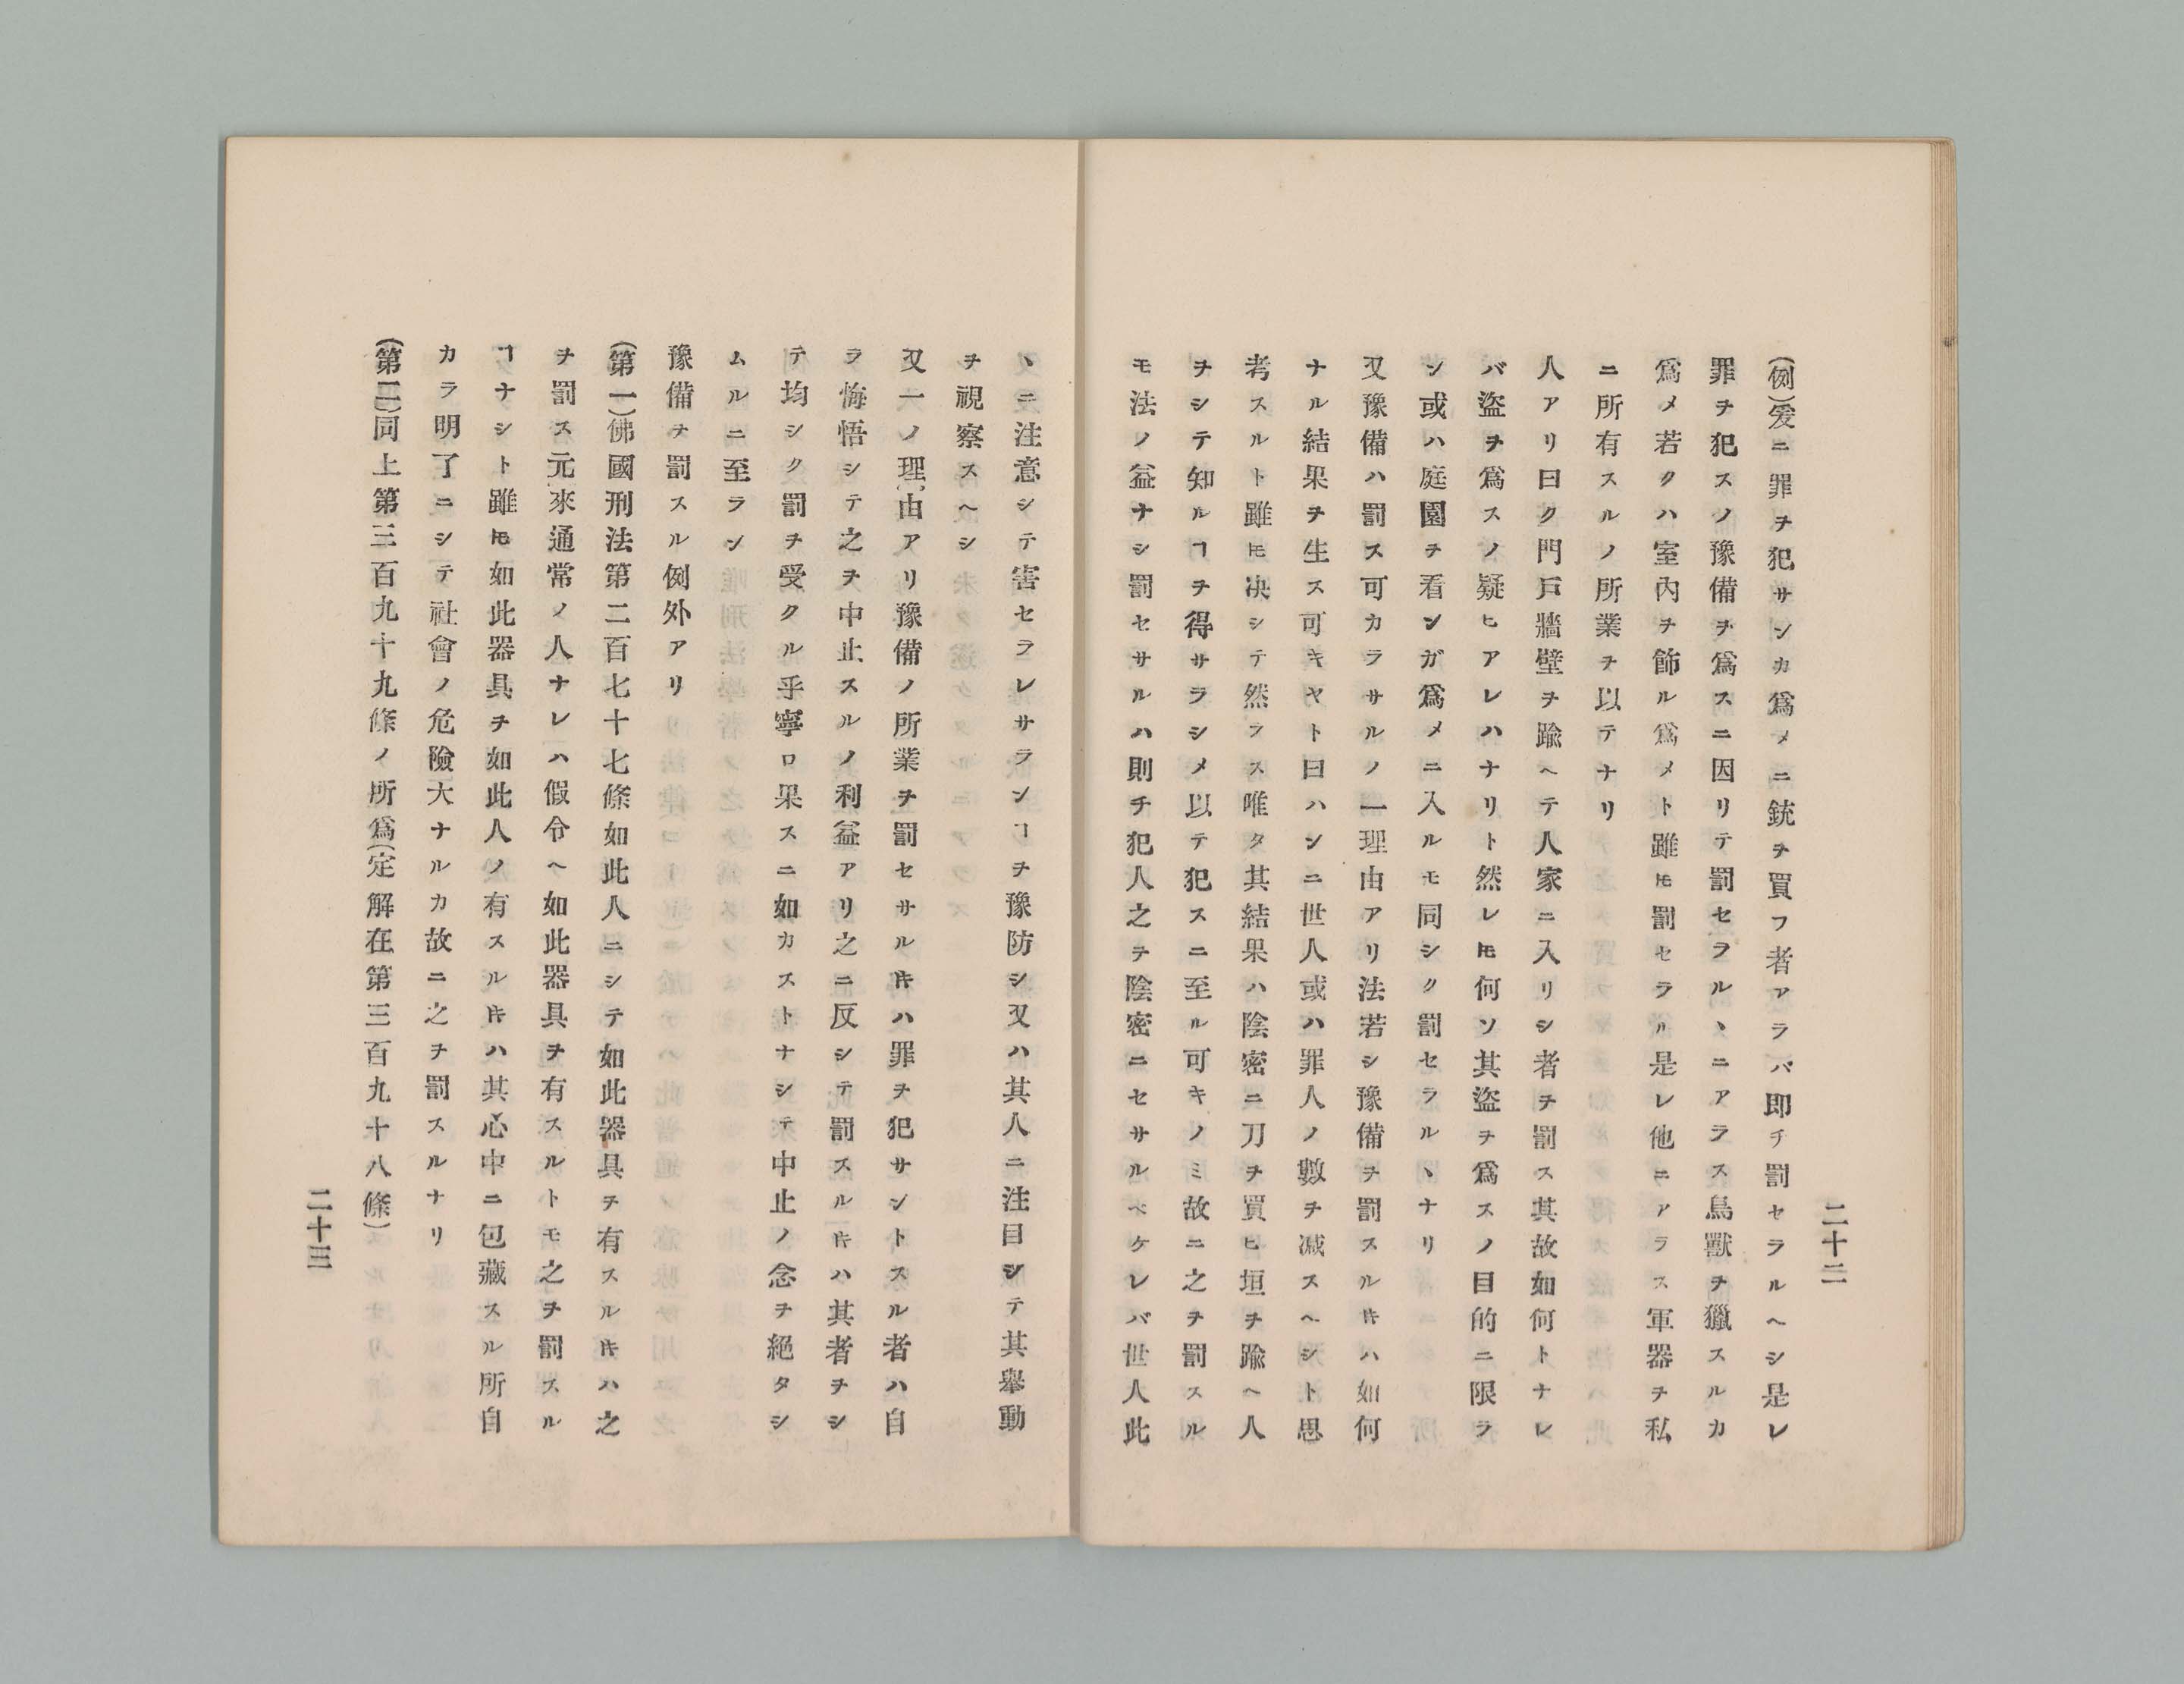 (例)爰ニ罪ヲ犯サンカ爲メニ銃ヲ買フ者アラバ即チ罰セラルヘシ是レ
罪ヲ犯スノ豫備ヲ爲スニ因リテ罰セラルヽニアラス鳥獸ヲ獵スルカ
爲メ若クハ室內ヲ飾ル爲メト雖𪜈罰セラル是レ他ニアラス軍器ヲ私
ニ所有スルノ所業ヲ以テナリ
人アリ曰ク門戸牆壁ヲ踰ヘテ人家ニ入リシ者ヲ罰ス其故如何トナレ
バ盜ヲ爲スノ疑ヒアレハナリト然レ𪜈何ソ其盜ヲ爲スノ目的ニ限ラ
ン或ハ庭園ヲ看ンガ爲メニ入ルモ同シク罰セラルヽナリ
又豫備ハ罰ス可カラサルノ一理由アリ法若シ豫備ヲ罰スル𪜀ハ如何
ナル結果ヲ生ス可キヤト曰ハンニ世人或ハ罪人ノ數ヲ减スヘシト思
考スルト雖𪜈决シテ然ラス唯タ其結果ハ陰密ニ刀ヲ買ヒ垣ヲ踰ヘ人
ヲシテ知ルヿヲ得サラシメ以テ犯スニ至ル可キノミ故ニ之ヲ罰スル
モ法ノ益ナシ罰セサルハ則チ犯人之ヲ陰密ニセサルベケレバ世人此
二十二
ヽニ注意シテ害セラレサランヿヲ豫防シ又ハ其人ニ注目シテ其擧動
ヲ視察スヘシ
又一ノ理由アリ豫備ノ所業ヲ罰セサル𪜀ハ罪ヲ犯サントスル者ハ自
ラ悔悟シテ之ヲ中止スルノ利益アリ之ニ反シテ罰スル𪜀ハ其者ヲシ
テ均シク罰ヲ受クル乎寧ロ果スニ如カストナシテ中止ノ念ヲ絕タシ
ムルニ至ラン
豫備ヲ罰スル例外アリ
(第一)佛國刑法第二百七十七條如此人ニシテ如此器具ヲ有スル𪜀ハ之
ヲ罰ス元來通常ノ人ナレハ假令ヘ如此器具ヲ有スルトモ之ヲ罰スル
ヿナシト雖𪜈如此器具ヲ如此人ノ有スル𪜀ハ其心中ニ包藏スル所自
カラ明了ニシテ社會ノ危險大ナルカ故ニ之ヲ罰スルナリ
(第二)同上第三百九十九條ノ所爲(定解在第三百九十八條)
二十三